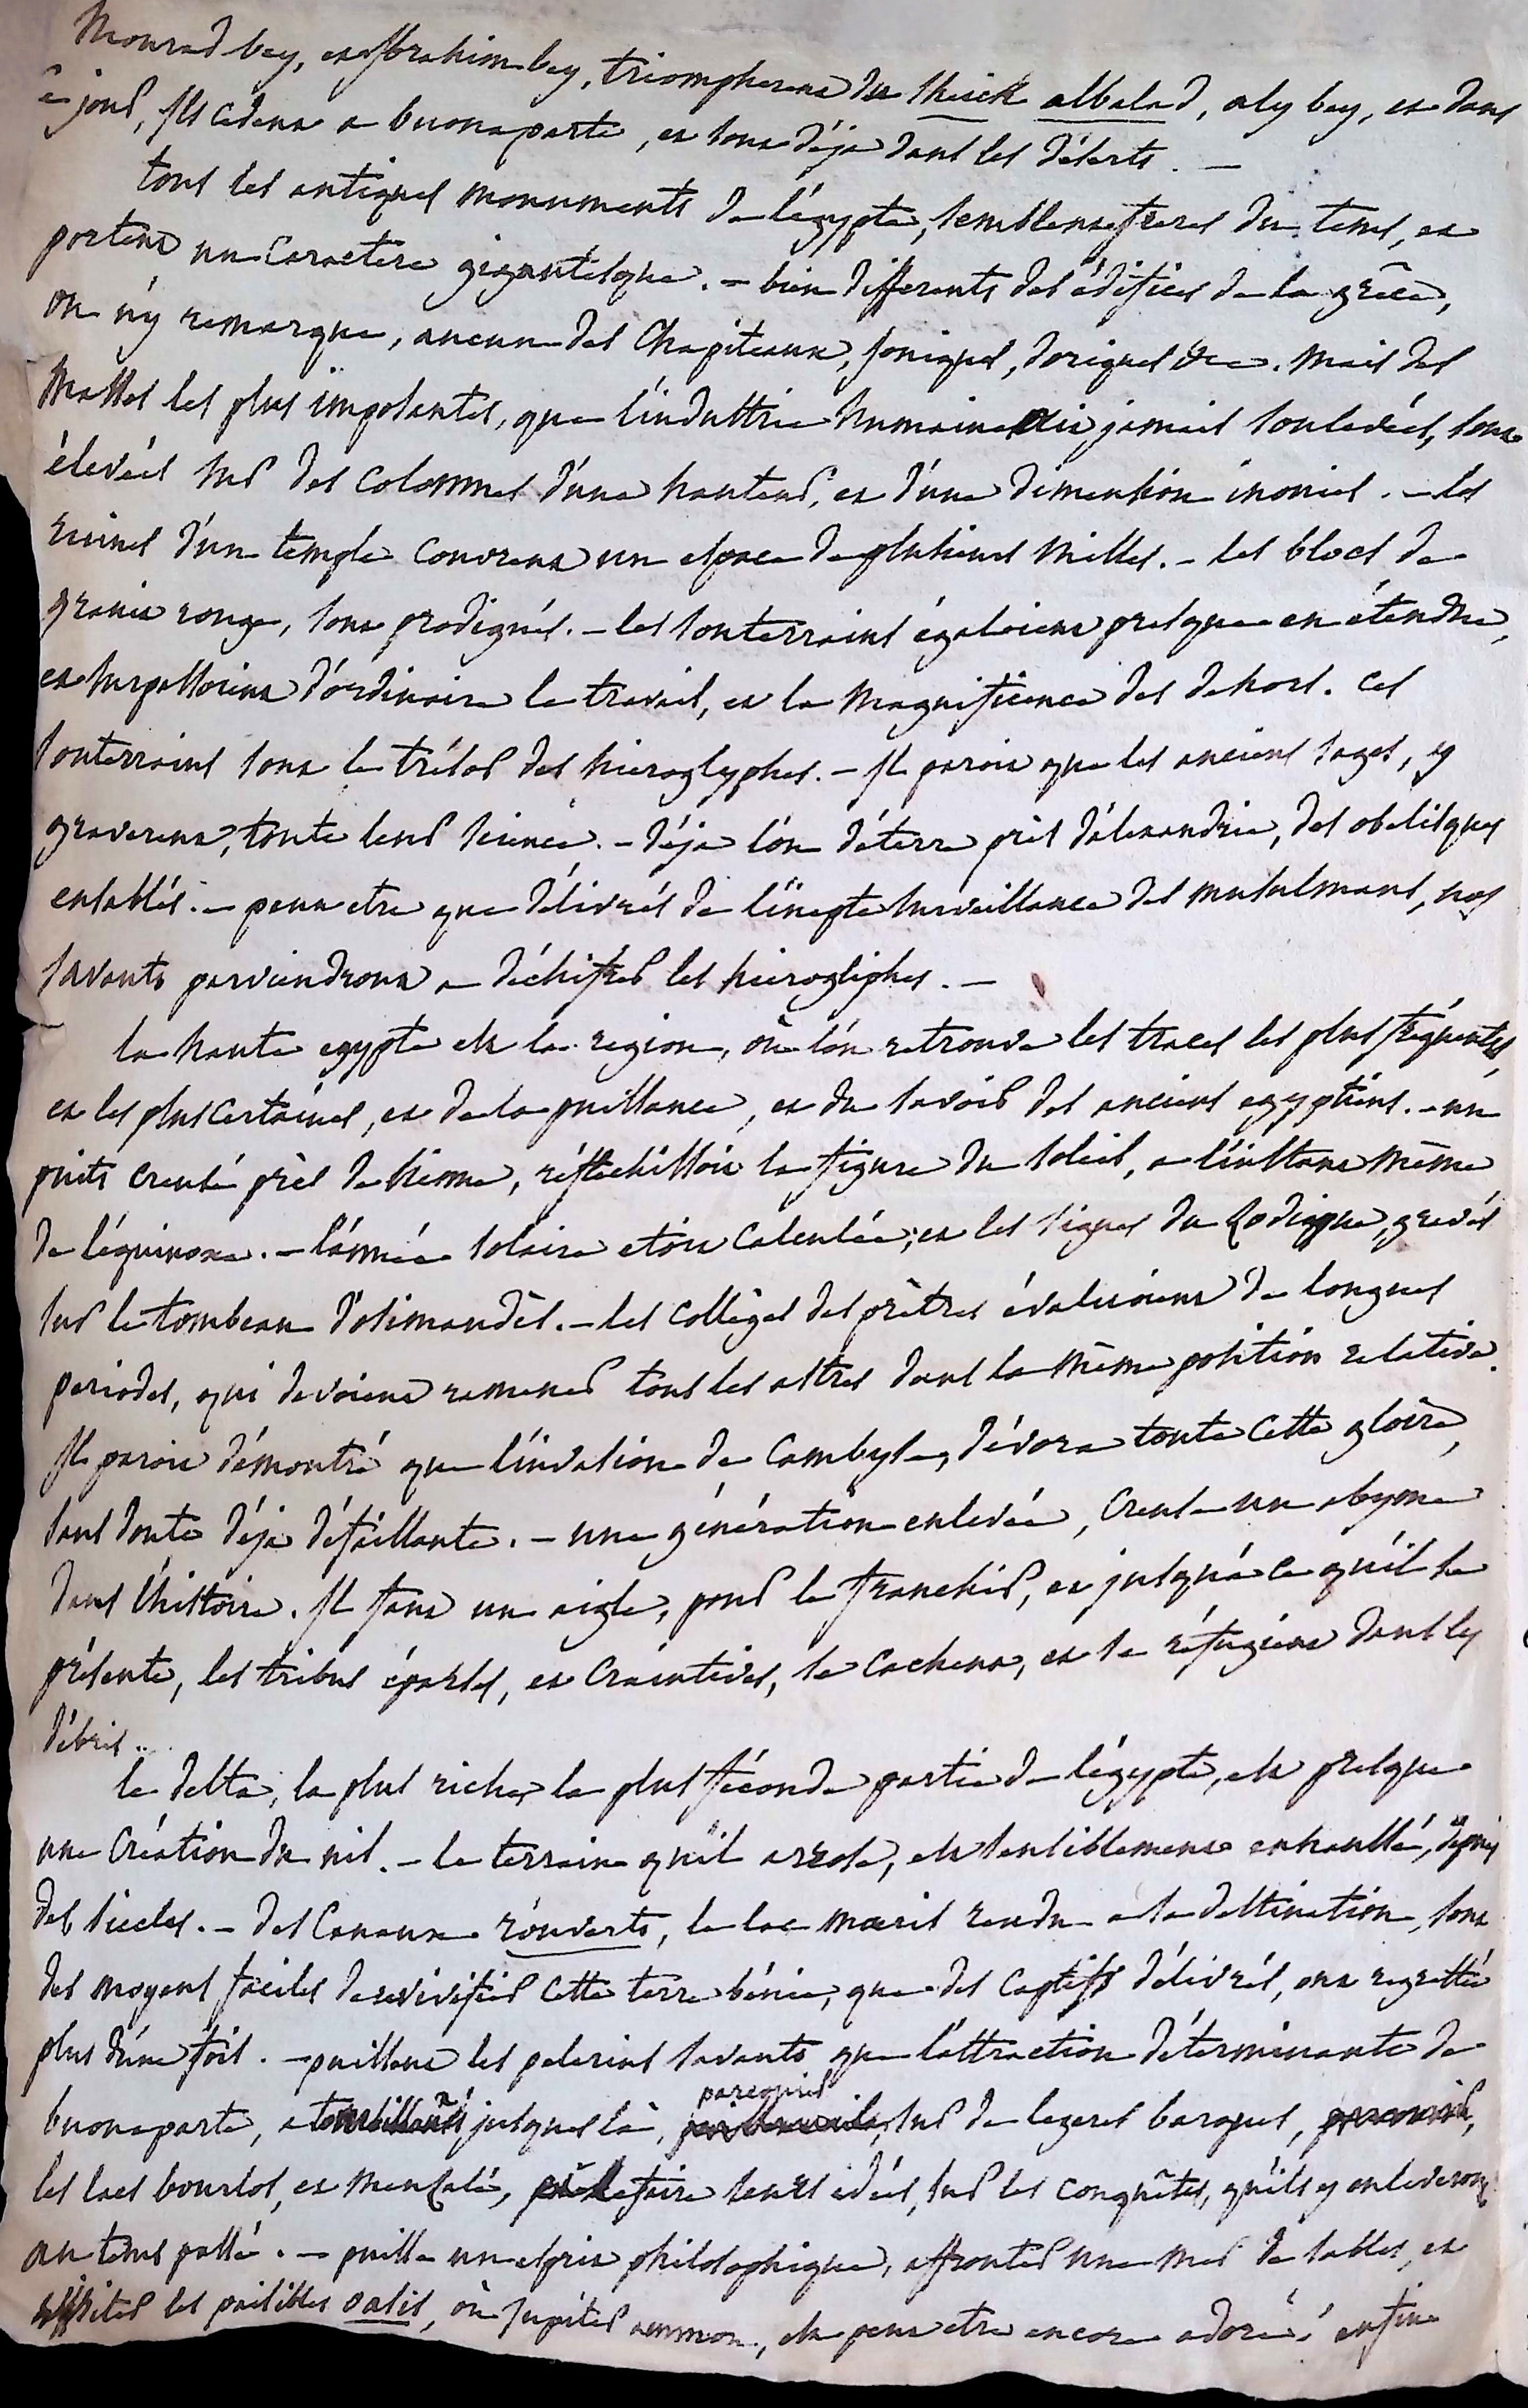 Mourad bey, et Ibrahim bey, triompherent du Sheick albalad, aly bey, et dans
ce jour, ils cedent a buonaparte, et sont déja dans les déserts. —
tous les antiques monuments de l'égypte, semblent freres du tems, et
portent un caractere gigantesque. — bien differents des édifices de la grêce,
on n'y remarque, aucun des chapiteaux, ioniques, doriques &c. mais des
masses les plus imposantes, que l'industrie humaine ait jamais soulevées, sont
élevées sur des colonnes d'une hauteur, et d'une dimension inouies. — les
ruines d'un temple couvrent un espace de plusieurs milles. — les blocs de
granit rouge, sont prodigués. — les souterrains égaloient presque en étendue,
et surpassoient d'ordinaire le travail, et la magnificence des dehors. ces
souterrains sont le trésor des hieroglyphes. — il paroit que les anciens sages, y
graverent, toute leur science. — déja l'on déterre près d'alexandrie, des obelisques
ensablés. — peut etre que délivrés de l'inepte surveillance des musulmans, nos
savants parviendront a déchifrer les hierogliphes. —
la haute egypte est la region, où l'on retrouve les traces les plus fréquentes,
et les plus certaines, et de la puissance, et du savoir des anciens egyptiens. — un
puits creusé près de sienne, réflechissoit la figure du soleil, a l'instant même
de l'équinoxe. — l'année solaire etoit calculée; et les signes du zodiaque, gravés
sur le tombeau d'osimandès. — les collèges des prêtres évaluoient de longues
periodes, qui devoient ramener tous les astres dans la même position relative.
il paroit démontré que l'invasion de cambyse, dévora toute cette gloire,
sans doute déja défaillante. — une génération enlevée, creuse un abyme
dans l'histoire. il faut un aigle, pour le franchir, et jusqu'a ce qu'il se
présente, les tribus éparses, et craintives, se cachent, et se réfugient dans les
débris..
le delta, la plus riche, la plus féconde partie de l'égypte, est presque
une création du nil. — le terrain qu'il arrose, est sensiblement exhaussé, depuis
des siecles. — des canaux r'ouverts, le lac mæris rendu a sa destination, sont
des moyens faciles de revivifier cette terre bénie, que des captifs délivrés, ont regrettée
plus d'une fois. — puissent les pelerins savants que l'attraction déterminante de
buonaparte, a jusques là, parcourir sur de legeres barques,
les lacs bourlos, et menzalé, faire leurs idées, sur les conquêtes, qu'ils y enleveront
au tems passé. — puisse un esprit philosophique, affronter une mer de sables, et
visiter les paisibles oasis, où Jupiter ammon, est peut etre encore adoré! enfin